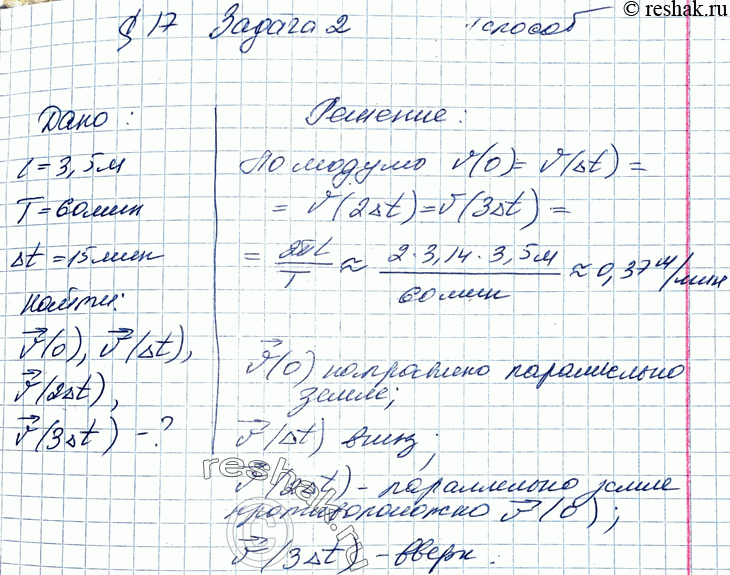 © reshak.ru
§ 17 Задача 2 способ
Дано:
l = 3,5м
T = 60мин
Δt = 15мин
Найти:
v⃗(0), v⃗(Δt),
v⃗(2Δt),
v⃗(3Δt) - ?
Решение:
По модулю v(0) = v(Δt) =
= v(2Δt) = v(3Δt) =
= 2πl/T ≈ 2·3,14·3,5м/60мин ≈ 0,37 м/мин
v⃗(0) направлено параллельно
земле;
v⃗(Δt) вниз;
v⃗(2Δt) - параллельно земле
противоположно v⃗(0);
v⃗(3Δt) - вверх.
reshak.ru
©